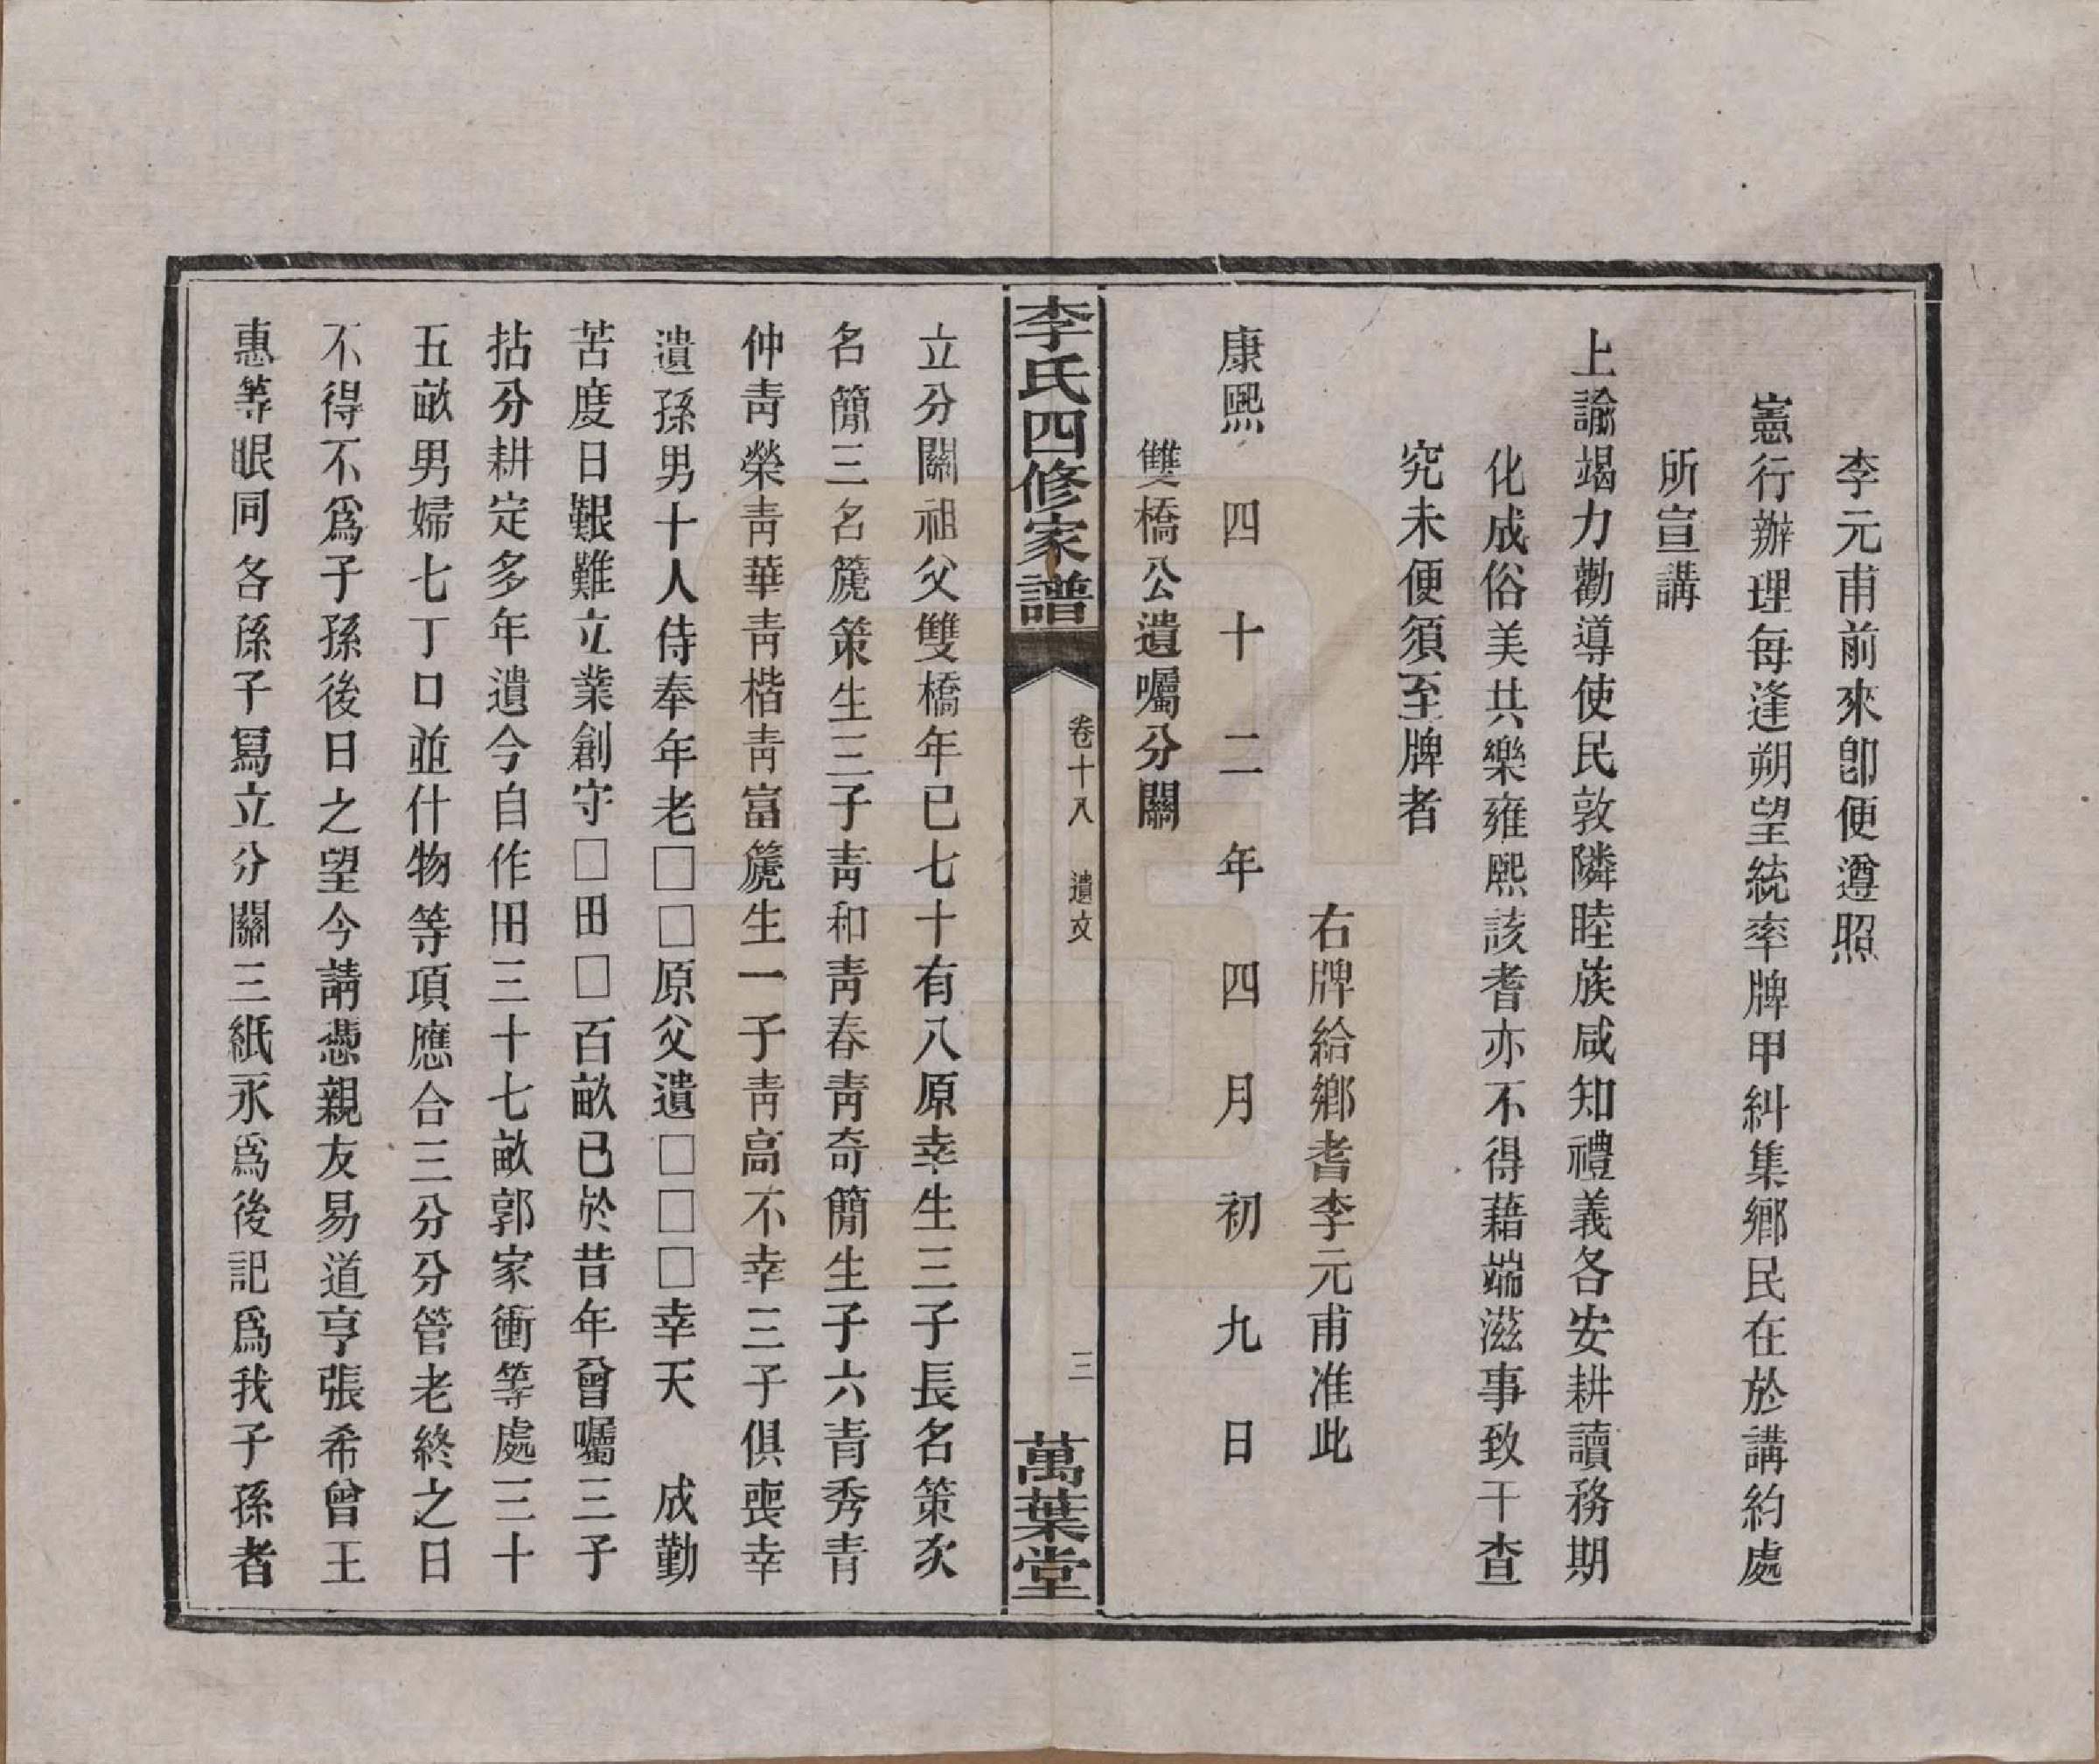 李元甫前來卽便遵照
憲行辦理每逢朔望統率牌甲糾集鄉民在於講約處
所宣講
上諭竭力勸導使民敦隣睦族咸知禮義各安耕讀務期
化成俗美共樂雍熙該耆亦不得藉端滋事致干查
究未便須至牌者
右牌給鄉耆李元甫准此
康熙四十二年四月初九日
雙橋公遺囑分關
李氏四修家譜
卷十八 遺文
三
萬葉堂
立分關祖父雙橋年已七十有八原幸生三子長名策次
名簡三名篪策生三子靑和靑春靑奇簡生子六青秀青
仲靑榮靑華靑楷靑富篪生一子靑高不幸三子俱喪幸
遺孫男十人侍奉年老□□原父遺□□□幸天 成勤
苦度日艱難立業創守□田□百畝已於昔年曾囑三子
拈分耕定多年遺今自作田三十七畝郭家衝等處三十
五畝男婦七丁口並什物等項應合三分分管老終之日
不得不爲子孫後日之望今請憑親友易道亨張希曾王
惠等眼同各孫子寫立分關三紙永爲後記爲我子孫者